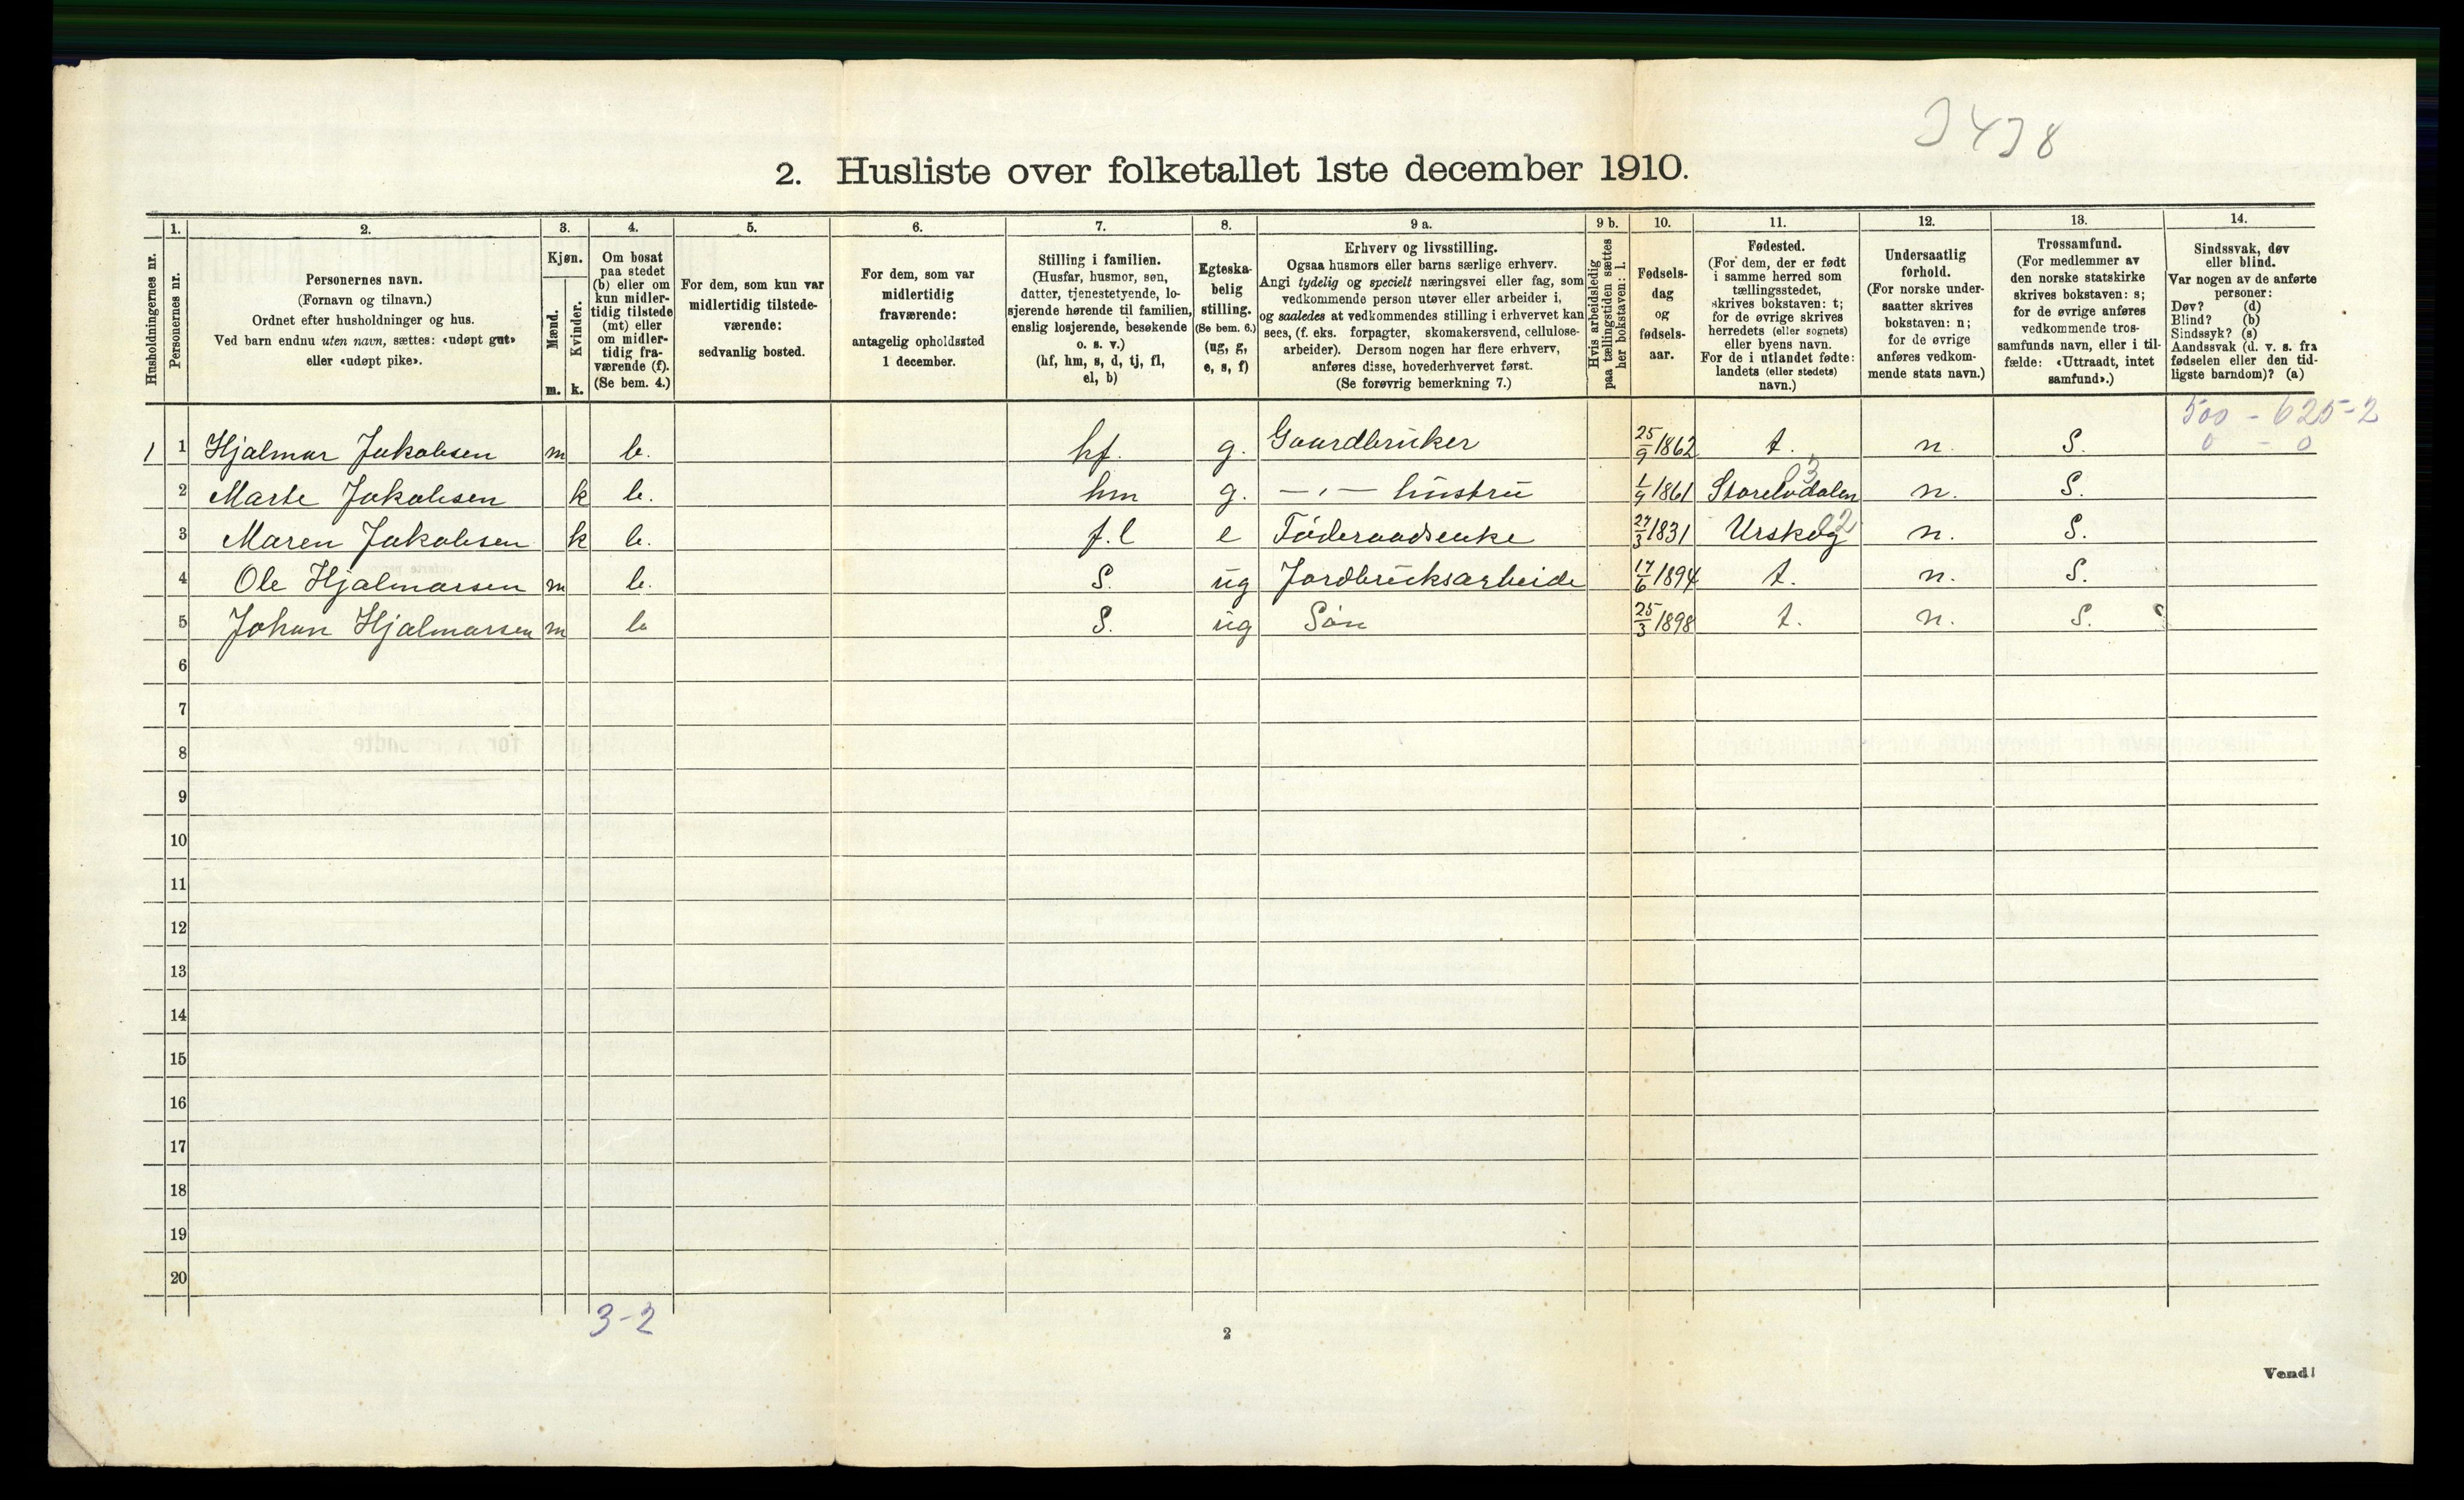 J4J8
2. Husliste over folketallet 1ste december 1910.
Husholdningernes nr.
1. Personernes nr.
2. Personernes navn.
(Fornavn og tilnavn.)
Ordnet efter husholdninger og hus.
Ved barn endnu uten navn, sættes: «udøpt gut»
eller «udøpt pike».
3. Kjøn.
Mænd. m.
Kvinder. k.
4. Om bosat
paa stedet
(b) eller om
kun midler-
tidig tilstede
(mt) eller
om midler-
tidig fra-
værende (f).
(Se bem. 4.)
5. For dem, som kun var
midlertidig tilstede-
værende:
sedvanlig bosted.
6. For dem, som var
midlertidig
fraværende:
antagelig opholdssted
1 december.
7. Stilling i familien.
(Husfar, husmor, søn,
datter, tjenestetyende, lo-
sjerende hørende til familien,
enslig losjerende, besøkende
o. s. v.)
(hf, hm, s, d, tj, fl,
el, b)
8. Egteska-
belig
stilling.
(Se bem. 6.)
(ug, g,
e, s, f)
9 a. Erhverv og livsstilling.
Ogsaa husmors eller barns særlige erhverv.
Angi tydelig og specielt næringsvei eller fag, som
vedkommende person utøver eller arbeider i,
og saaledes at vedkommendes stilling i erhvervet kan
sees, (f. eks. forpagter, skomakersvend, cellulose-
arbeider). Dersom nogen har flere erhverv,
anføres disse, hovederhvervet først.
(Se forøvrig bemerkning 7.)
9 b. Hvis arbeidsledig
paa tællingstiden sættes
her bokstaven: l.
10. Fødsels-
dag
og
fødsels-
aar.
11. Fødested.
(For dem, der er født
i samme herred som
tællingsstedet,
skrives bokstaven: t;
for de øvrige skrives
herredets (eller sognets)
eller byens navn.
For de i utlandet fødte:
landets (eller stedets)
navn.)
12. Undersaatlig
forhold.
(For norske under-
saatter skrives
bokstaven: n;
for de øvrige
anføres vedkom-
mende stats navn.)
13. Trossamfund.
(For medlemmer av
den norske statskirke
skrives bokstaven: s;
for de øvrige anføres
vedkommende tros-
samfunds navn, eller i til-
fælde: «Uttraadt, intet
samfund».)
14. Sindssvak, døv
eller blind.
Var nogen av de anførte
personer:
Døv? (d)
Blind? (b)
Sindssyk? (s)
Aandssvak (d. v. s. fra
fødselen eller den tid-
ligste barndom)? (a)
500 - 625-2
0 - 0
1 1 Hjalmar Jakobsen m b. hf. g. Gaardbruker 25/9 1862 t. n. S.
2 Marte Jakobsen k b. hm g. —〃— hustru 1/9 1861 Storelvdalen 03 n. S.
3 Maren Jakobsen k b. f.l e Föderaadsenke 27/3 1831 Urskog 02 n. S.
4 Ole Hjalmarsen m b. S. ug Jordbruksarbeide 17/6 1894 t. n. S.
5 Johan Hjalmarsen m b S. ug Sön 25/3 1898 t. n. S.
6
7
8
9
10
11
12
13
14
15
16
17
18
19
20
3-2
2
Vend!